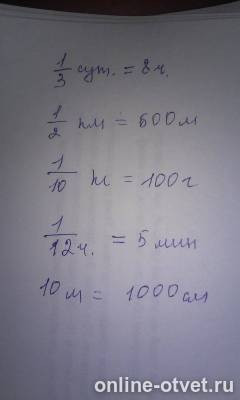 1/3 сут. = 8 ч.
1/2 км = 500 м
1/10 кг = 100 г
1/12 ч. = 5 мин
10 м = 1000 см
online-otvet.ru